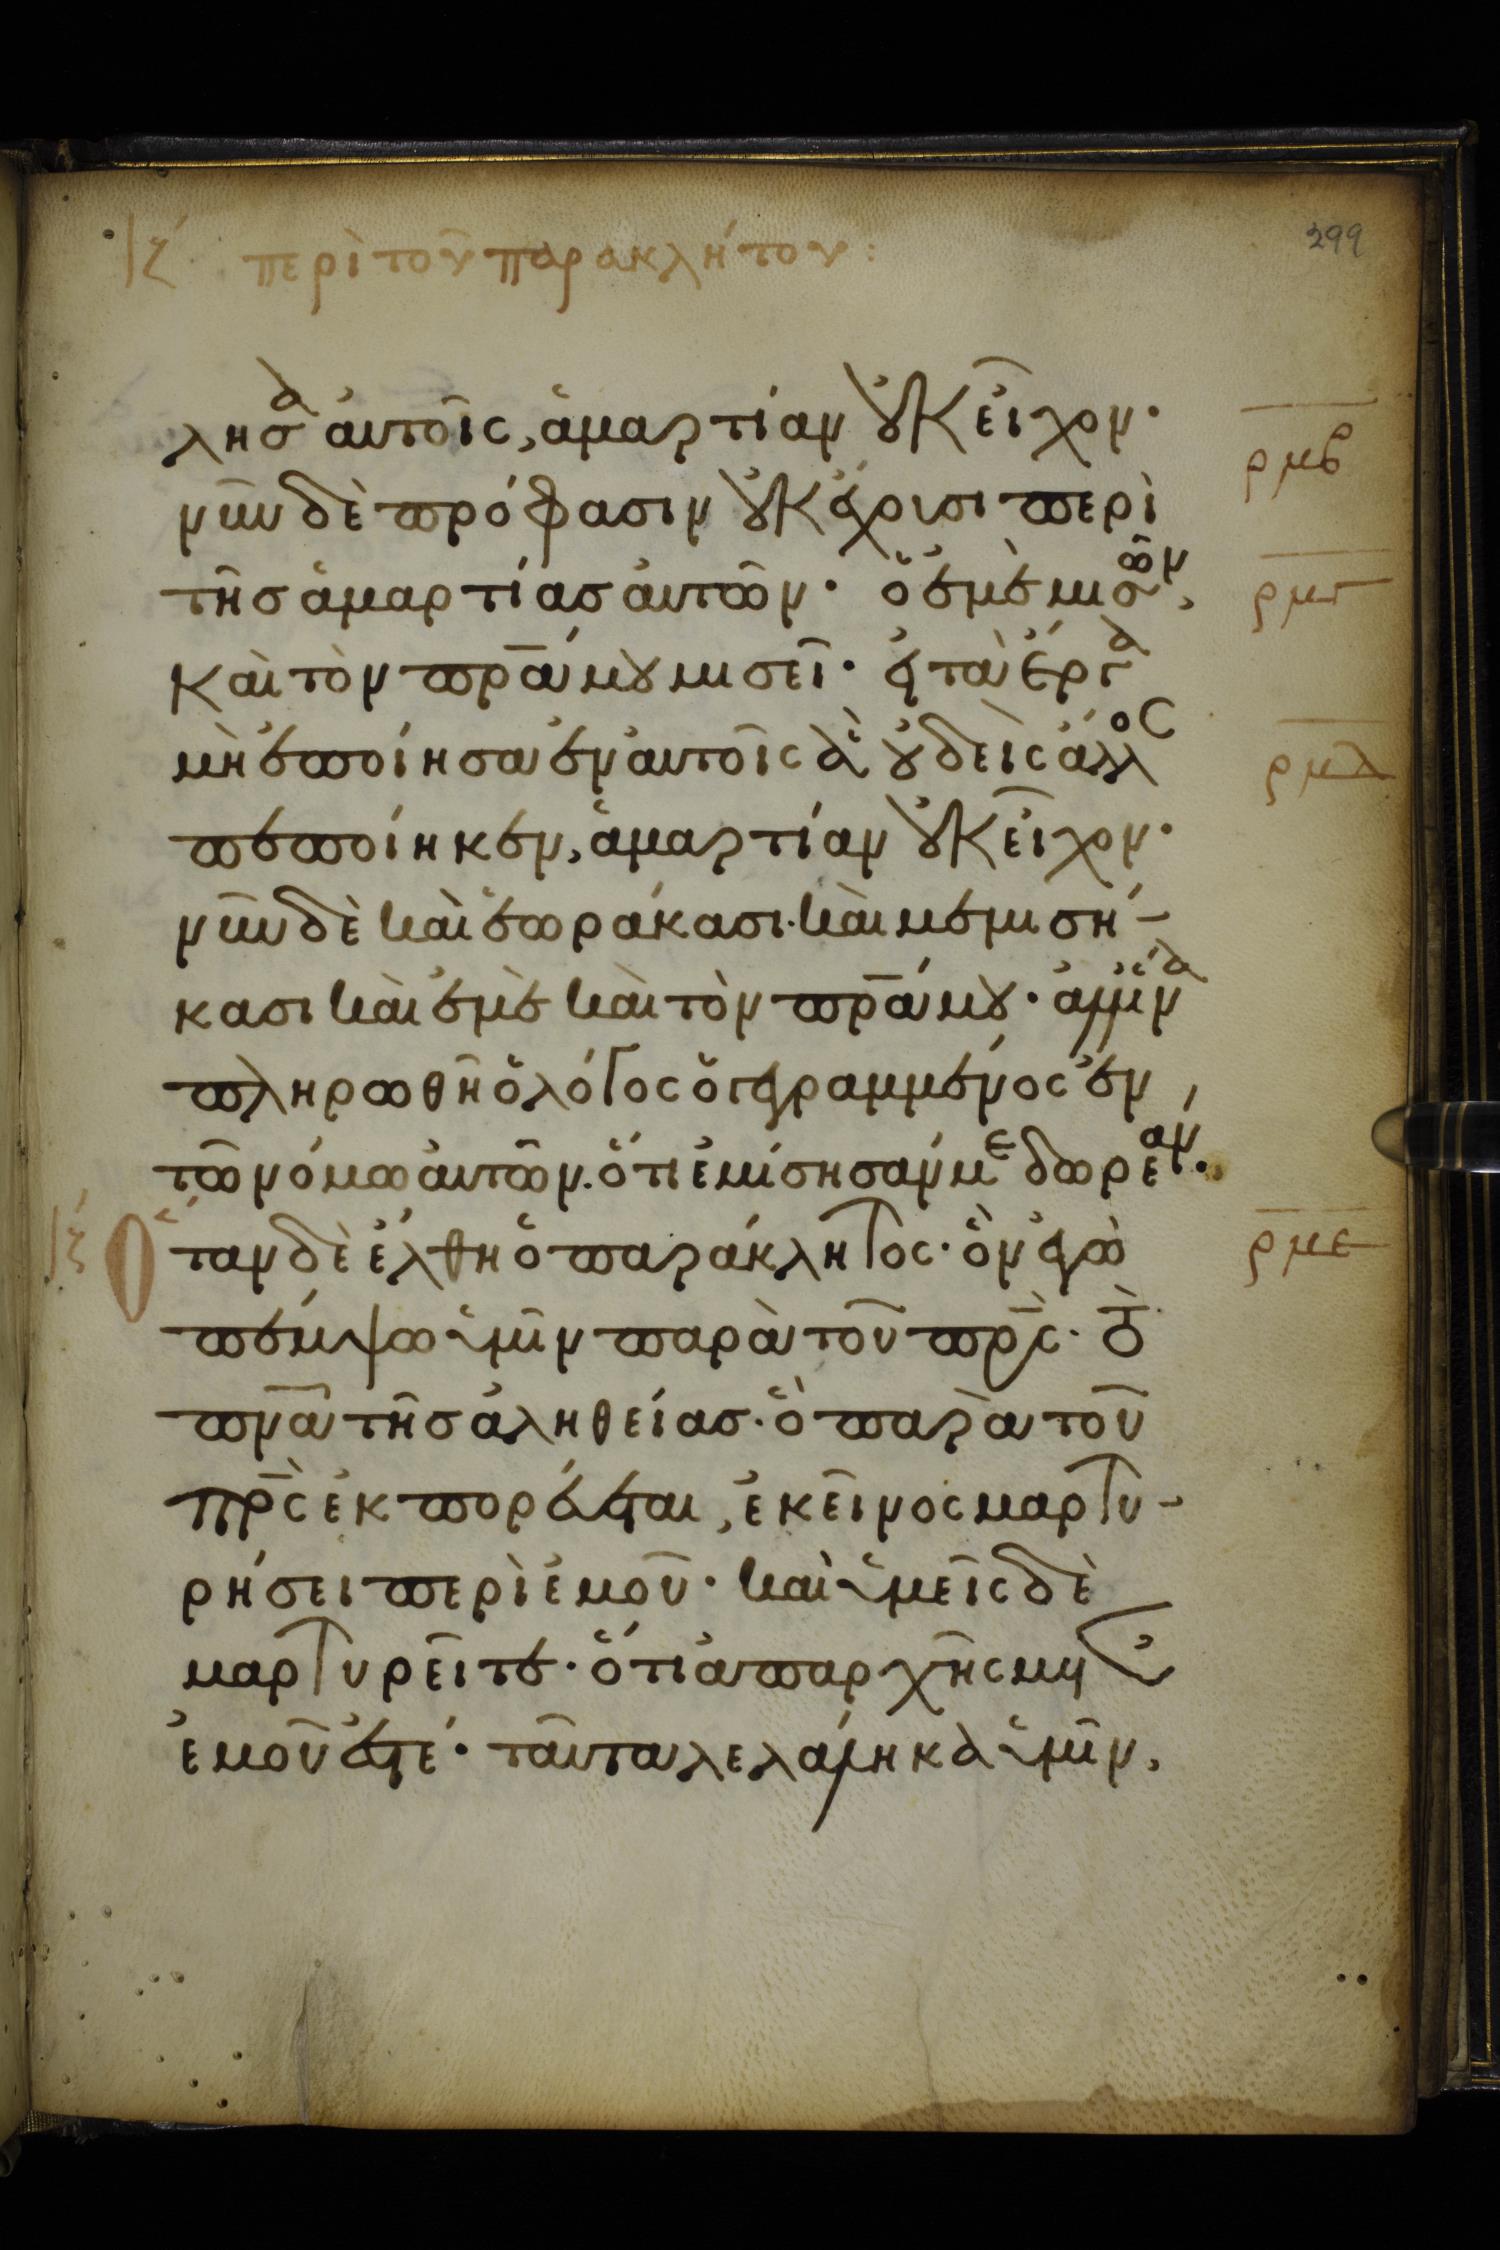 ιζ´ περὶ τοῦ παρακλήτου:
299
λησα αὐτοῖς, ἁμαρτίαν οὐκ εἶχον·
ρμβ
νῦν δὲ πρόφασιν οὐκ ἔχουσι περὶ
τῆς ἁμαρτίας αὐτῶν· ὁ ἐμὲ μισῶν,
ρμγ
καὶ τὸν πρ̅α μου μισεῖ· εἰ τὰ ἔργα
μὴ ἐποίησα ἐν αὐτοῖς ἃ οὐδεὶς ἄλλος
ρμδ
πεποίηκεν, ἁμαρτίαν οὐκ εἶχον·
νῦν δὲ καὶ ἑωράκασι· καὶ μεμισή-
κασι καὶ ἐμὲ καὶ τὸν πρ̅α μου· ἀλλ' ἵνα
πληρωθῆ ὁ λόγος ὁ γεγραμμένος ἐν
τῶ νόμω αὐτῶν· ὅτι ἐμίσησάν με δωρεάν·
ιζ´ Ὅταν δὲ ἔλθη ὁ παράκλητος· ὃν ἐγὼ
ρμε
πέμψω ὑμῖν παρὰ τοῦ πρ̅ς· τὸ
πν̅α τῆς ἀληθείας· ὃ παρὰ τοῦ
πρ̅ς ἐκπορεύεται, ἐκεῖνος μαρτυ-
ρήσει περὶ ἐμοῦ· καὶ ὑμεῖς δὲ
μαρτυρεῖτε· ὅτι ἀπαρχῆς μετ'
ἐμοῦ ἐστέ· ταῦτα λελάληκα ὑμῖν,